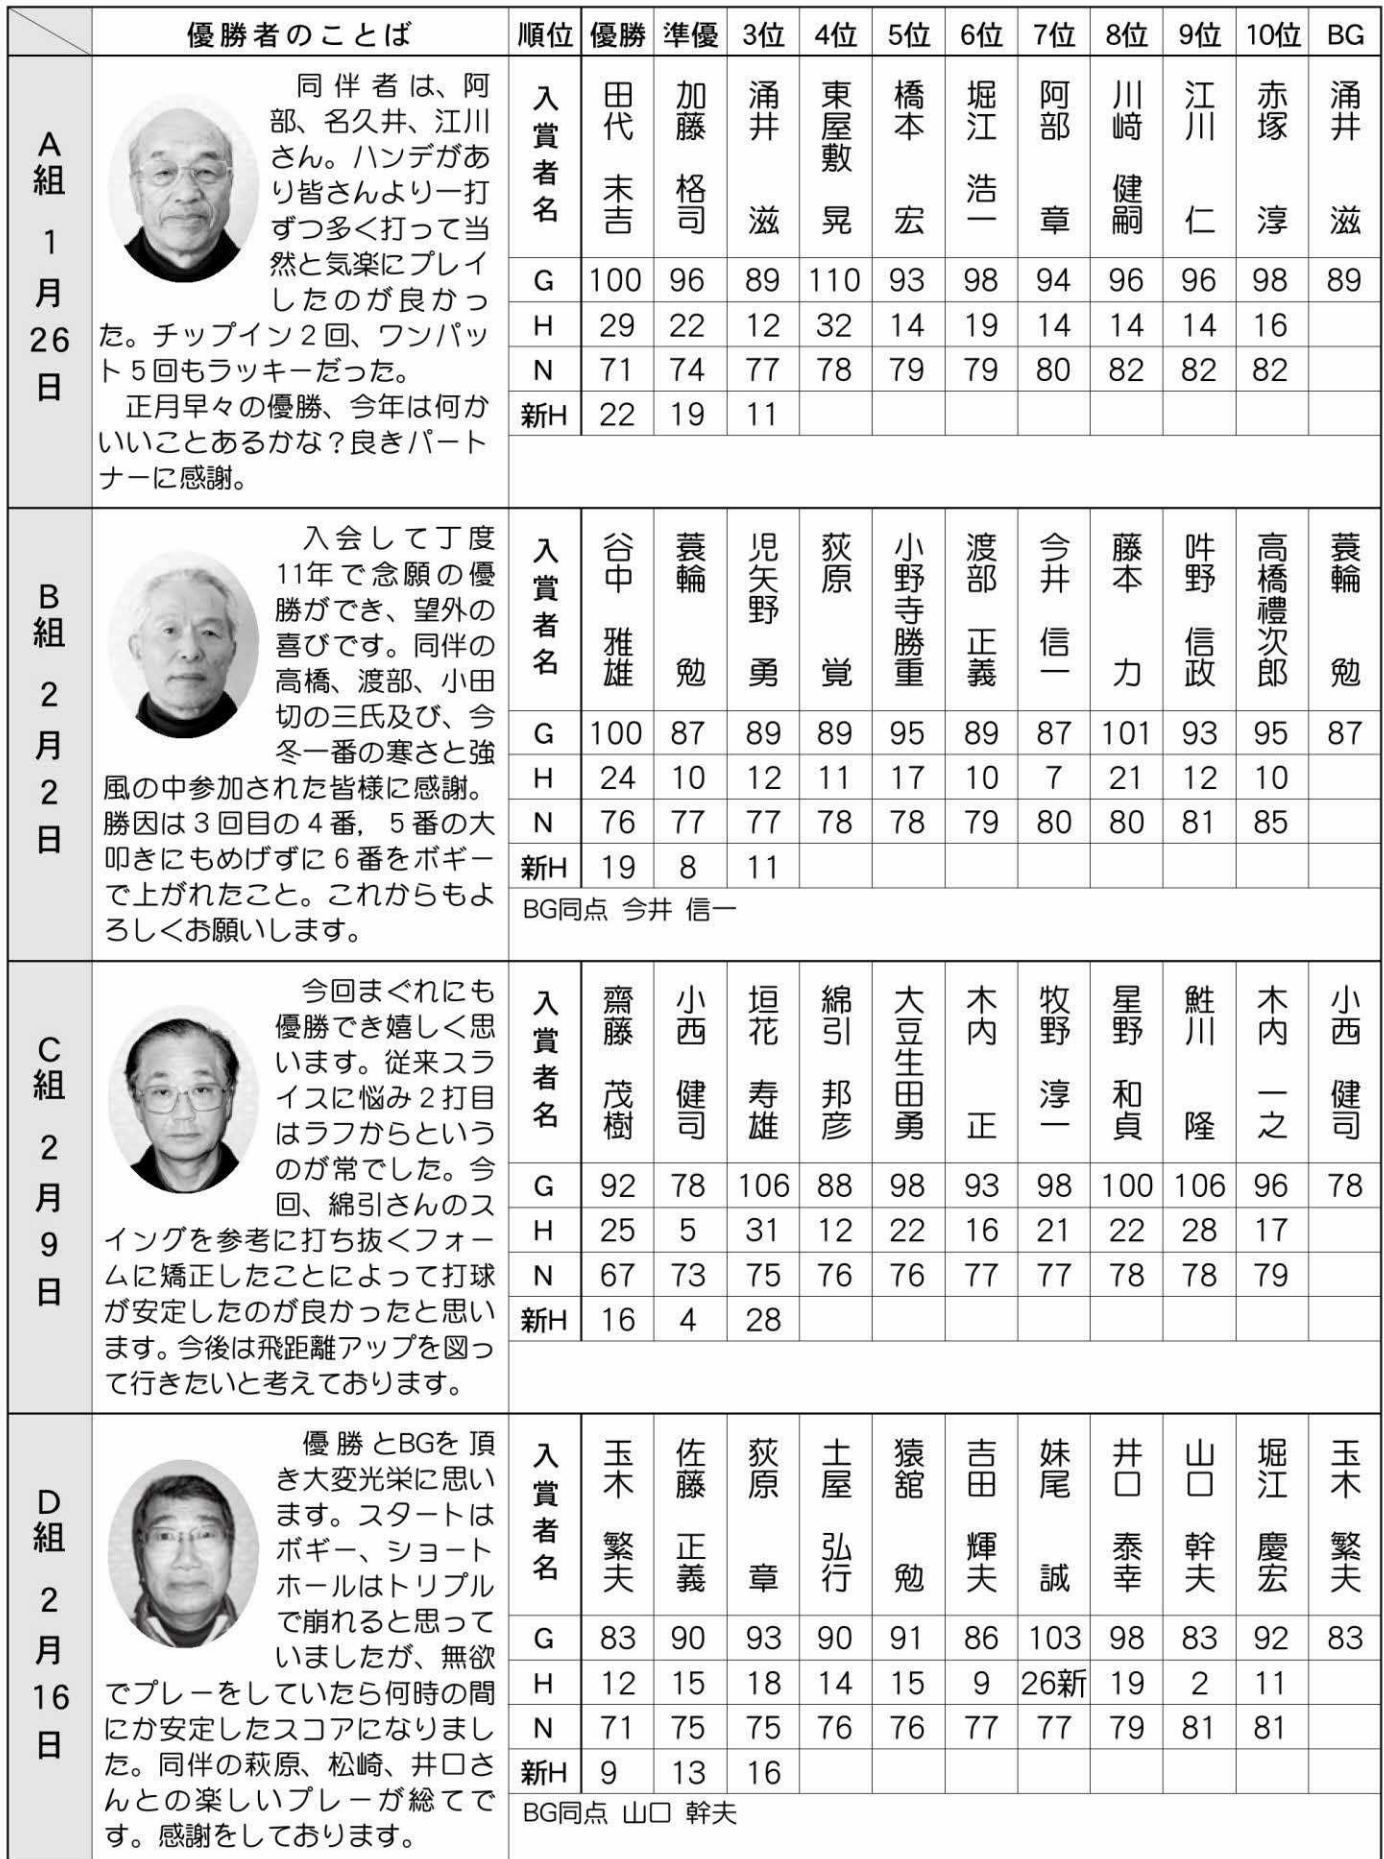 優勝者のことば 順位 優勝 準優 3位 4位 5位 6位 7位 8位 9位 10位 BG
A組 1月26日
同伴者は、阿
部、名久井、江川
さん。ハンデがあ
り皆さんより一打
ずつ多く打って当
然と気楽にプレイ
したのが良かっ
た。チップイン2回、ワンパッ
ト5回もラッキーだった。
正月早々の優勝、今年は何か
いいことあるかな？良きパート
ナーに感謝。
入賞者名 田代 末吉 加藤 格司 涌井 滋 東屋敷 晃 橋本 宏 堀江 浩一 阿部 章 川﨑 健嗣 江川 仁 赤塚 淳 涌井 滋
G 100 96 89 110 93 98 94 96 96 98 89
H 29 22 12 32 14 19 14 14 14 16
N 71 74 77 78 79 79 80 82 82 82
新H 22 19 11
B組 2月2日
入会して丁度
11年で念願の優
勝ができ、望外の
喜びです。同伴の
高橋、渡部、小田
切の三氏及び、今
冬一番の寒さと強
風の中参加された皆様に感謝。
勝因は3回目の4番，5番の大
叩きにもめげずに6番をボギー
で上がれたこと。これからもよ
ろしくお願いします。
入賞者名 谷中 雅雄 蓑輪 勉 児矢野 勇 荻原 覚 小野寺勝重 渡部 正義 今井 信一 藤本 力 吽野 信政 高橋禮次郎 蓑輪 勉
G 100 87 89 89 95 89 87 101 93 95 87
H 24 10 12 11 17 10 7 21 12 10
N 76 77 77 78 78 79 80 80 81 85
新H 19 8 11
BG同点 今井 信一
C組 2月9日
今回まぐれにも
優勝でき嬉しく思
います。従来スラ
イスに悩み2打目
はラフからという
のが常でした。今
回、綿引さんのス
イングを参考に打ち抜くフォー
ムに矯正したことによって打球
が安定したのが良かったと思い
ます。今後は飛距離アップを図っ
て行きたいと考えております。
入賞者名 齋藤 茂樹 小西 健司 垣花 寿雄 綿引 邦彦 大豆生田勇 木内 正 牧野 淳一 星野 和貞 鮏川 隆 木内 一之 小西 健司
G 92 78 106 88 98 93 98 100 106 96 78
H 25 5 31 12 22 16 21 22 28 17
N 67 73 75 76 76 77 77 78 78 79
新H 16 4 28
D組 2月16日
優勝とBGを頂
き大変光栄に思い
ます。スタートは
ボギー、ショート
ホールはトリプル
で崩れると思って
いましたが、無欲
でプレーをしていたら何時の間
にか安定したスコアになりまし
た。同伴の萩原、松崎、井口さ
んとの楽しいプレーが総てで
す。感謝をしております。
入賞者名 玉木 繁夫 佐藤 正義 荻原 章 土屋 弘行 猿舘 勉 吉田 輝夫 妹尾 誠 井口 泰幸 山口 幹夫 堀江 慶宏 玉木 繁夫
G 83 90 93 90 91 86 103 98 83 92 83
H 12 15 18 14 15 9 26新 19 2 11
N 71 75 75 76 76 77 77 79 81 81
新H 9 13 16
BG同点 山口 幹夫